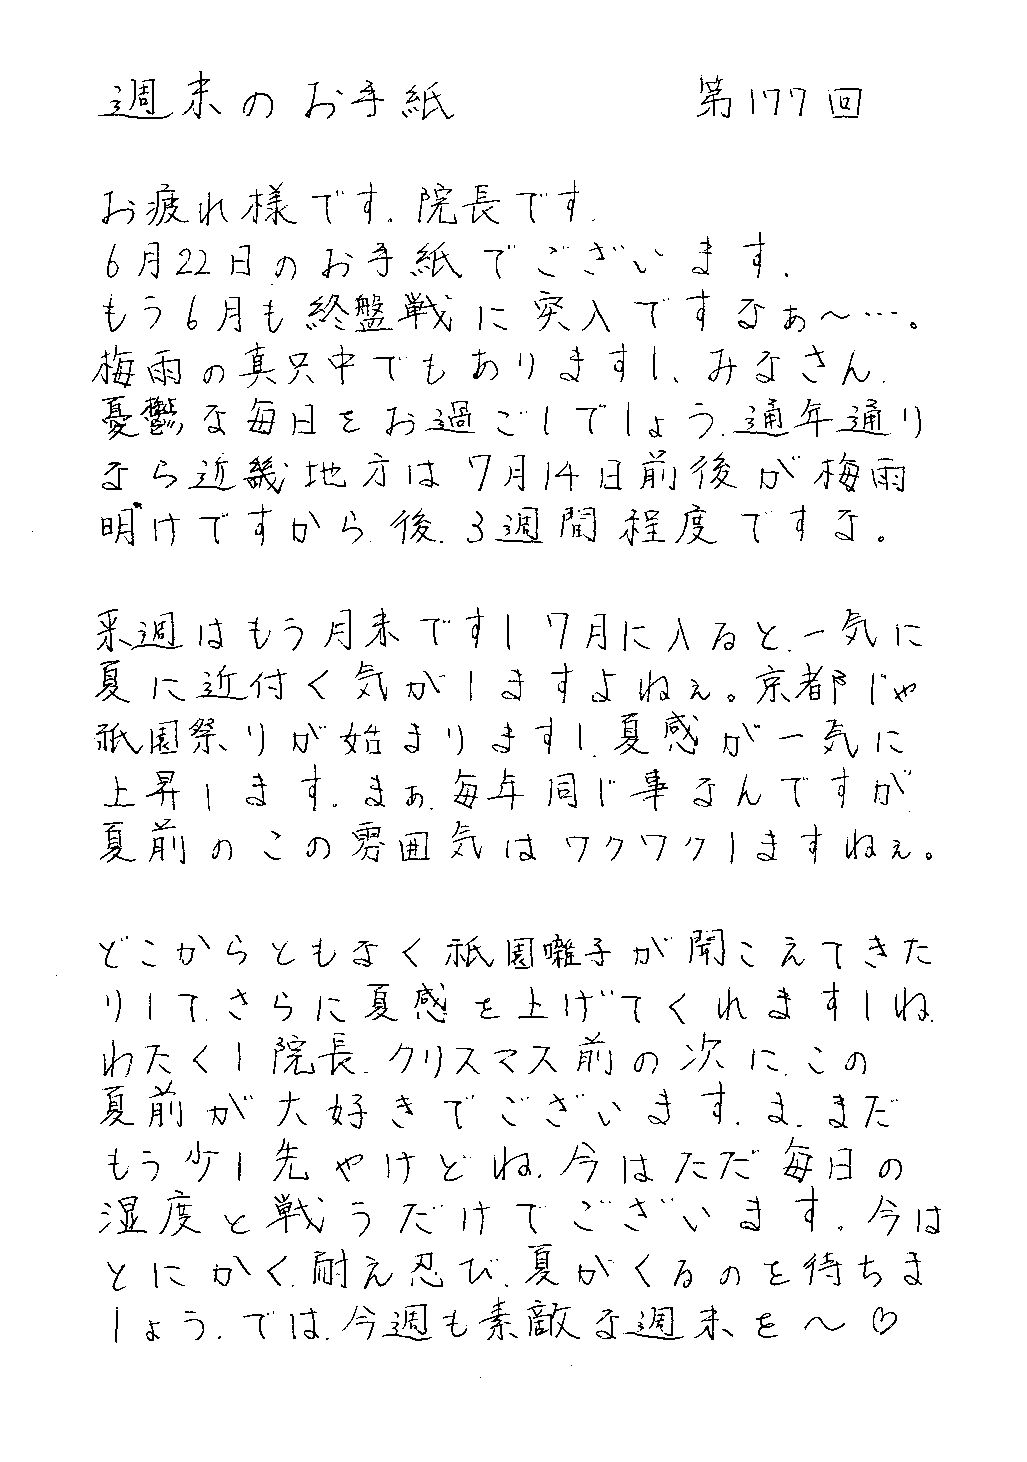 週末のお手紙 第177回
お疲れ様です、院長です。
6月22日のお手紙でございます。
もう6月も終盤戦に突入ですなぁ〜…。
梅雨の真只中でもありますし、みなさん、
憂鬱な毎日をお過ごしでしょう、通年通り
なら近畿地方は7月14日前後が梅雨
明けですから、後、3週間程度ですな。
来週はもう月末ですし7月に入ると、一気に
夏に近付く気がしますよねぇ。京都じゃ
祇園祭りが始まりますし、夏感が一気に
上昇します、まぁ、毎年同じ事なんですが、
夏前のこの雰囲気はワクワクしますねぇ。
どこからともなく祇園囃子が聞こえてきた
りして、さらに夏感を上げてくれますしね、
わたくし院長、クリスマス前の次に、この
夏前が大好きでございます、ま、まだ
もう少し先やけどね、今はただ毎日の
湿度と戦うだけでございます、今は
とにかく、耐え忍び、夏がくるのを待ちま
しょう、では、今週も素敵な週末を〜♡